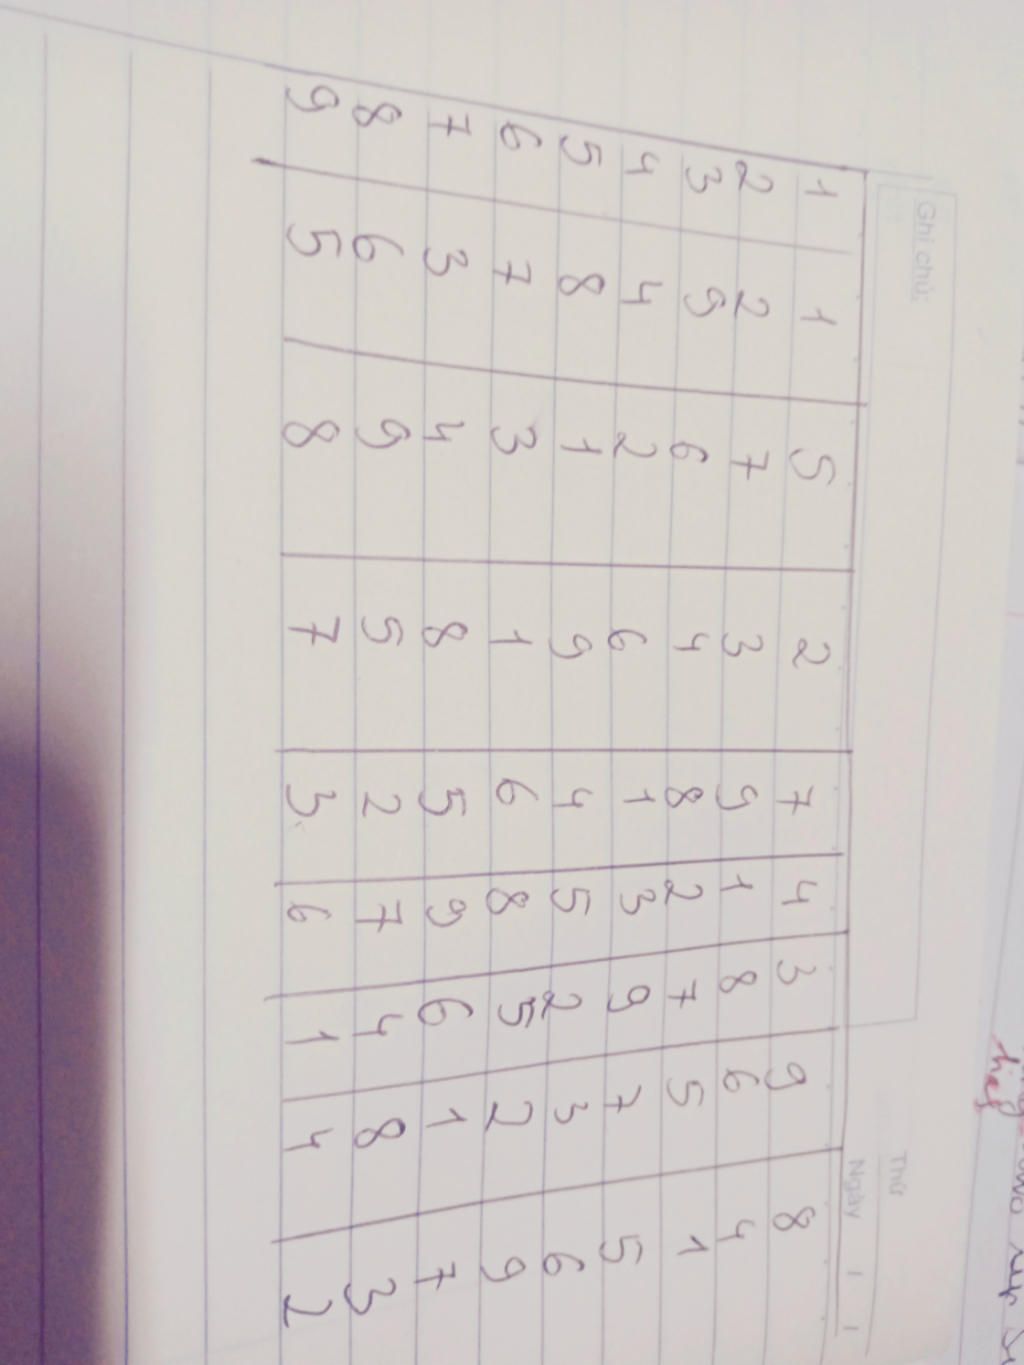 Thứ
Ghi chú:
Ngày / /
1 1 5 2 7 4 3 9 8
2 2 7 3 9 1 8 6 4
3 9 6 4 8 2 7 5 1
4 4 2 6 1 3 9 7 5
5 8 1 9 4 5 2 3 6
6 7 3 1 6 8 5 2 9
7 3 4 8 5 9 6 1 7
8 6 9 5 2 7 4 8 3
9 5 8 7 3 6 1 4 2